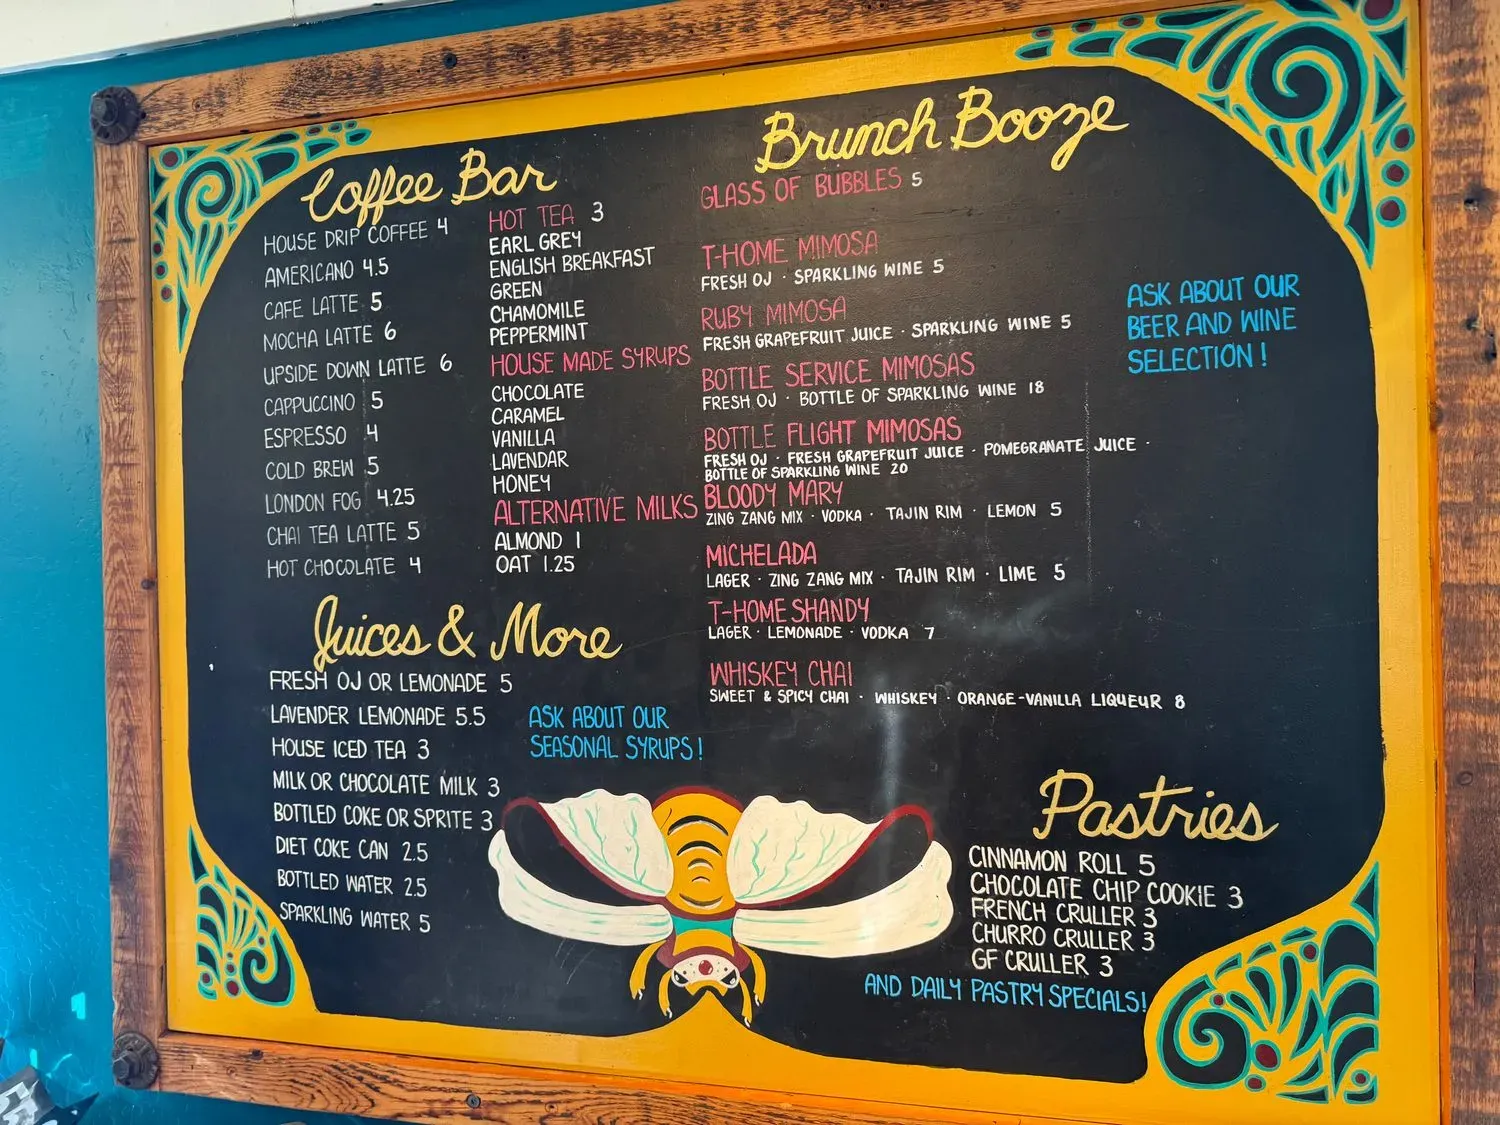 Coffee Bar
HOUSE DRIP COFFEE 4
AMERICANO 4.5
CAFE LATTE 5
MOCHA LATTE 6
UPSIDE DOWN LATTE 6
CAPPUCCINO 5
ESPRESSO 4
COLD BREW 5
LONDON FOG 4.25
CHAI TEA LATTE 5
HOT CHOCOLATE 4
HOT TEA 3
EARL GREY
ENGLISH BREAKFAST
GREEN
CHAMOMILE
PEPPERMINT
HOUSE MADE SYRUPS
CHOCOLATE
CARAMEL
VANILLA
LAVENDAR
HONEY
ALTERNATIVE MILKS
ALMOND 1
OAT 1.25
Juices & More
FRESH OJ OR LEMONADE 5
LAVENDER LEMONADE 5.5
HOUSE ICED TEA 3
MILK OR CHOCOLATE MILK 3
BOTTLED COKE OR SPRITE 3
DIET COKE CAN 2.5
BOTTLED WATER 2.5
SPARKLING WATER 5
ASK ABOUT OUR
SEASONAL SYRUPS!
Brunch Booze
GLASS OF BUBBLES 5
T-HOME MIMOSA
FRESH OJ · SPARKLING WINE 5
RUBY MIMOSA
FRESH GRAPEFRUIT JUICE · SPARKLING WINE 5
BOTTLE SERVICE MIMOSAS
FRESH OJ · BOTTLE OF SPARKLING WINE 18
BOTTLE FLIGHT MIMOSAS
FRESH OJ · FRESH GRAPEFRUIT JUICE · POMEGRANATE JUICE ·
BOTTLE OF SPARKLING WINE 20
BLOODY MARY
ZING ZANG MIX · VODKA · TAJIN RIM · LEMON 5
MICHELADA
LAGER · ZING ZANG MIX · TAJIN RIM · LIME 5
T-HOME SHANDY
LAGER · LEMONADE · VODKA 7
WHISKEY CHAI
SWEET & SPICY CHAI · WHISKEY · ORANGE-VANILLA LIQUEUR 8
ASK ABOUT OUR
BEER AND WINE
SELECTION!
Pastries
CINNAMON ROLL 5
CHOCOLATE CHIP COOKIE 3
FRENCH CRULLER 3
CHURRO CRULLER 3
GF CRULLER 3
AND DAILY PASTRY SPECIALS!